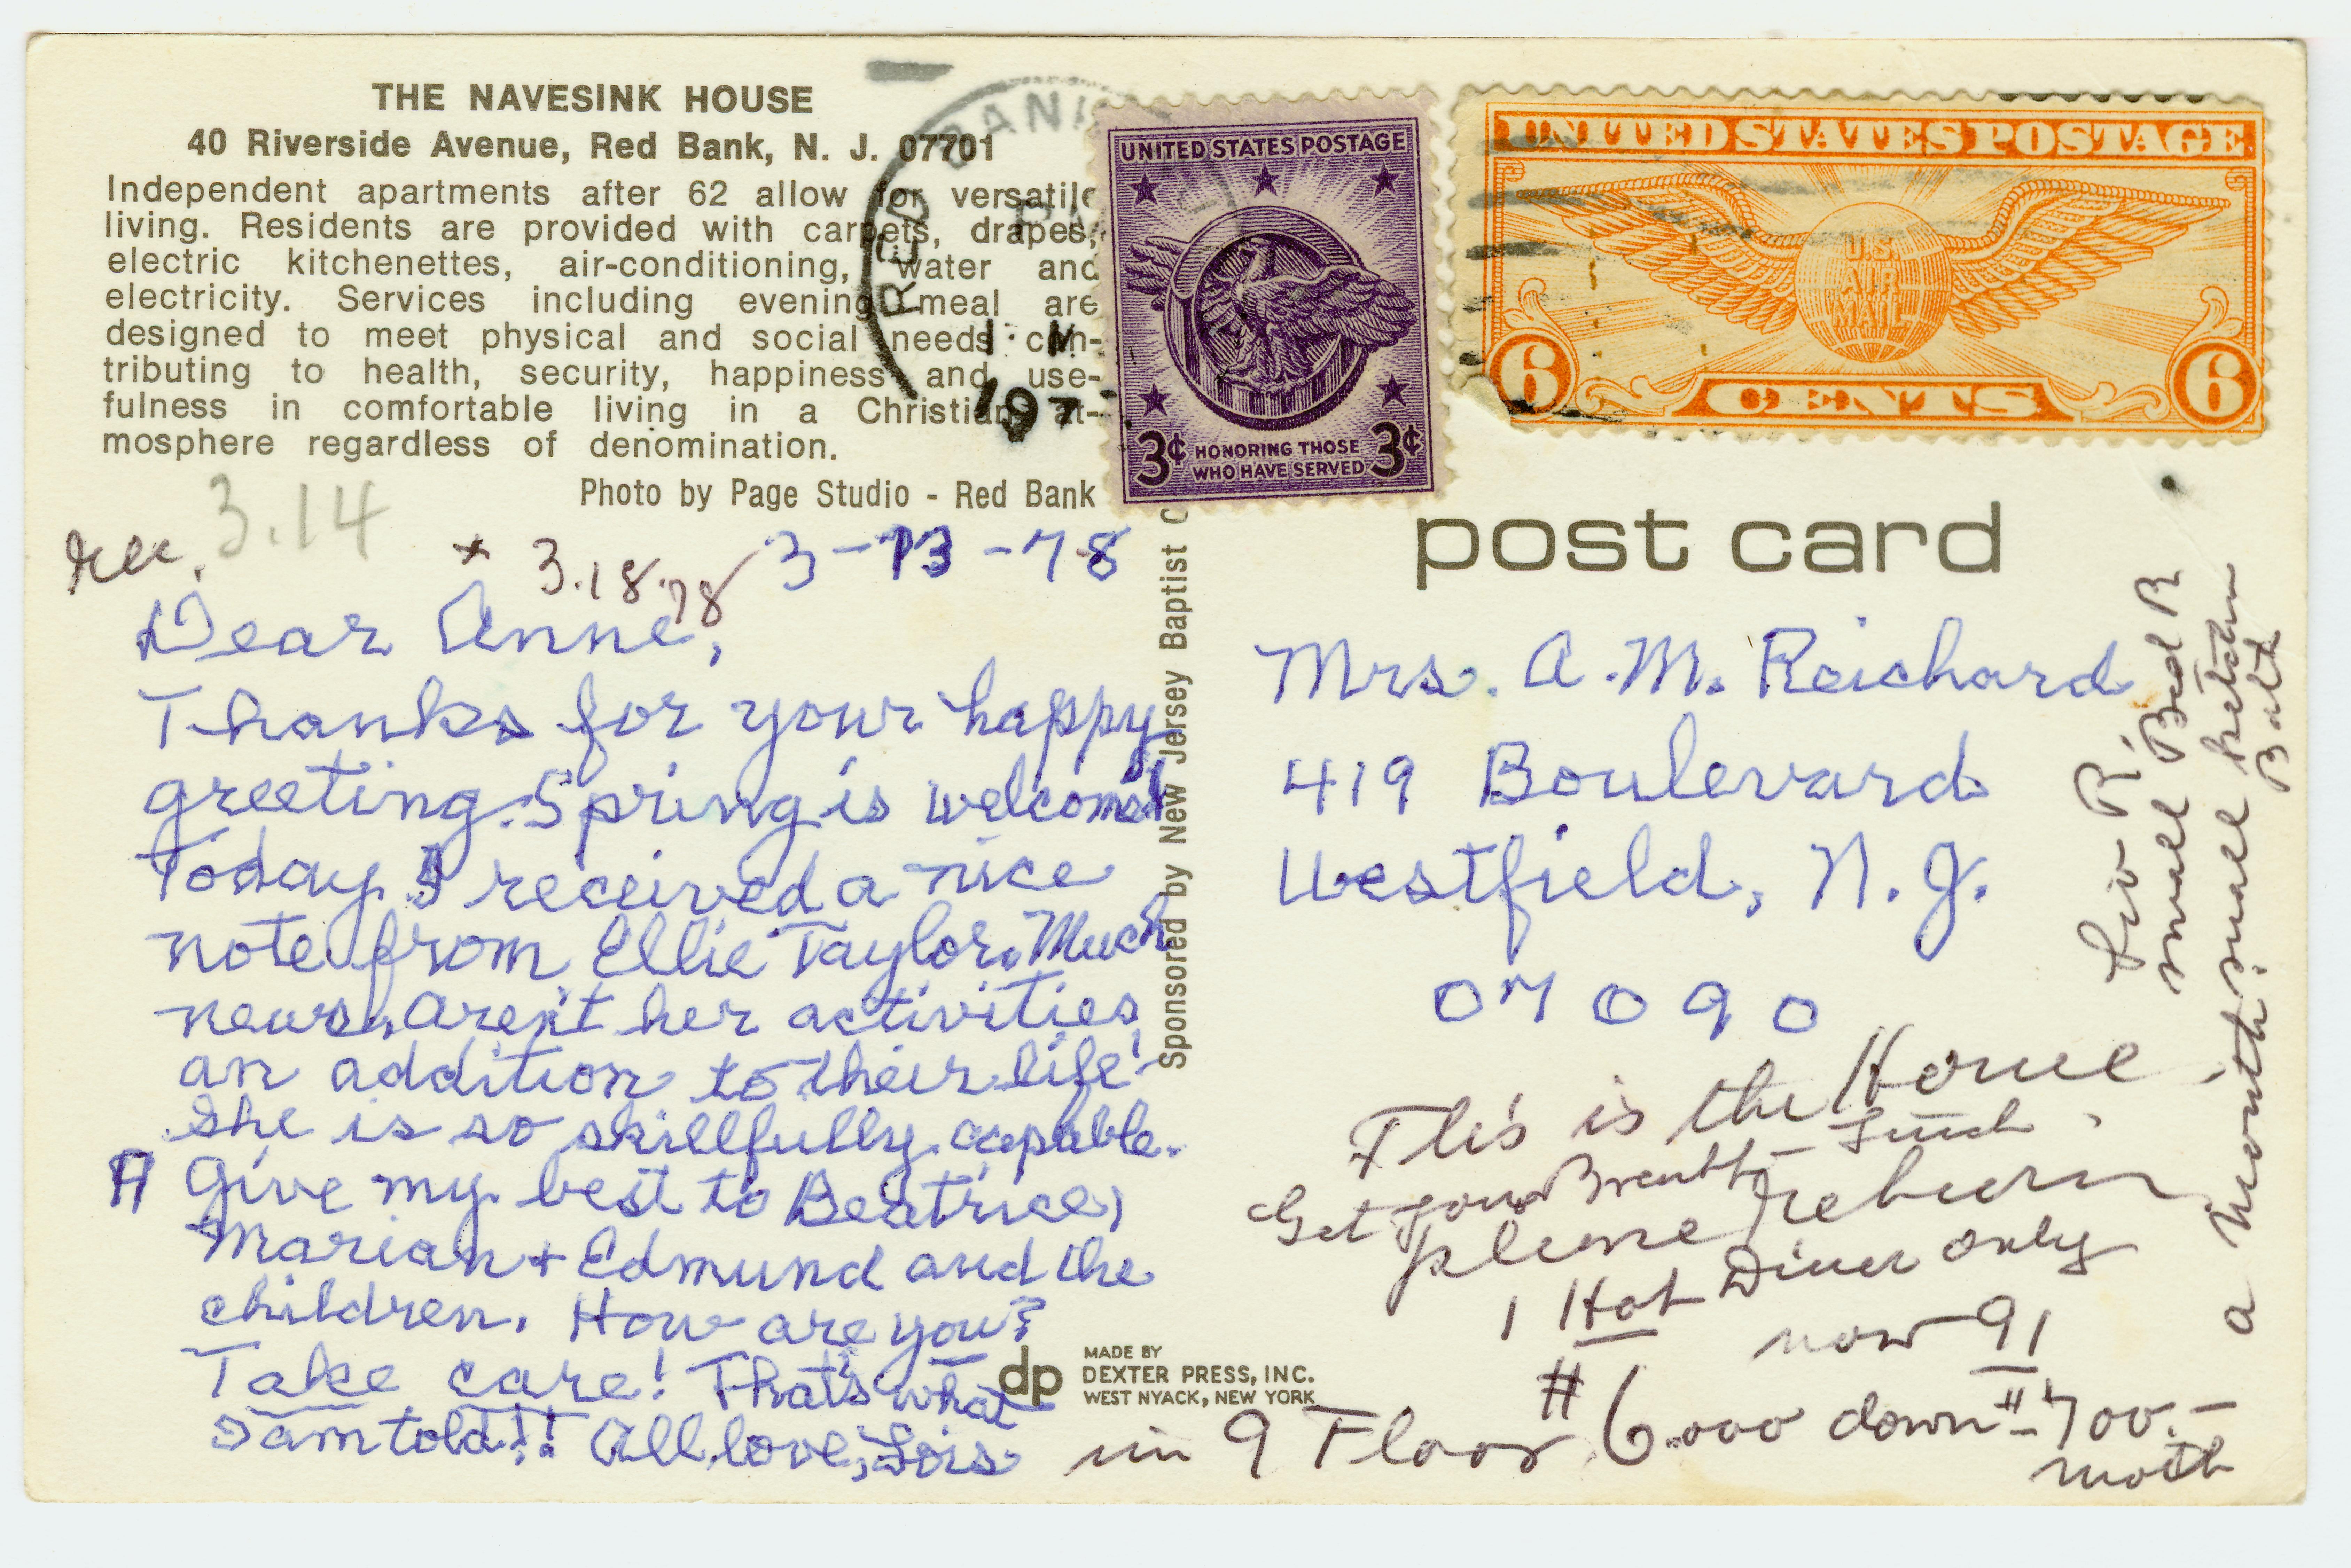 THE NAVESINK HOUSE
40 Riverside Avenue, Red Bank, N. J. 07701
Independent apartments after 62 allow for versatile
living. Residents are provided with carpets, drapes,
electric kitchenettes, air-conditioning, water and
electricity. Services including evening meal are
designed to meet physical and social needs con-
tributing to health, security, happiness and use-
fulness in comfortable living in a Christian at-
mosphere regardless of denomination.
Photo by Page Studio - Red Bank
RED BANK
PM
197
UNITED STATES POSTAGE
3¢ HONORING THOSE WHO HAVE SERVED 3¢
UNITED STATES POSTAGE
U.S.
AIR
MAIL
6 CENTS 6
post card
rec. 3.14 + 3.18.78
3-13-78
Dear Anne,
Thanks for your happy
greeting. Spring is welcomed
Today I received a nice
note from Ellie Taylor. Much
news, aren't her activities
an addition to their life!
She is so skillfully capable.
Give my best to Beatrice,
Marian + Edmund and the
children. How are you?
Take care! That's what
I am told!! All love, Lois
Sponsored by New Jersey Baptist
Mrs. A. M. Reichard
419 Boulevard
Westfield, N. J.
07090
Liv R.
small Bed R
small ketchen
Bath
This is the Home
Get your Breakf - Lunch
please return
1 Hot Diner only
now 91
in 9 Floor # 6.000 down # 700.-
moth
a month.
dp MADE BY
DEXTER PRESS, INC.
WEST NYACK, NEW YORK